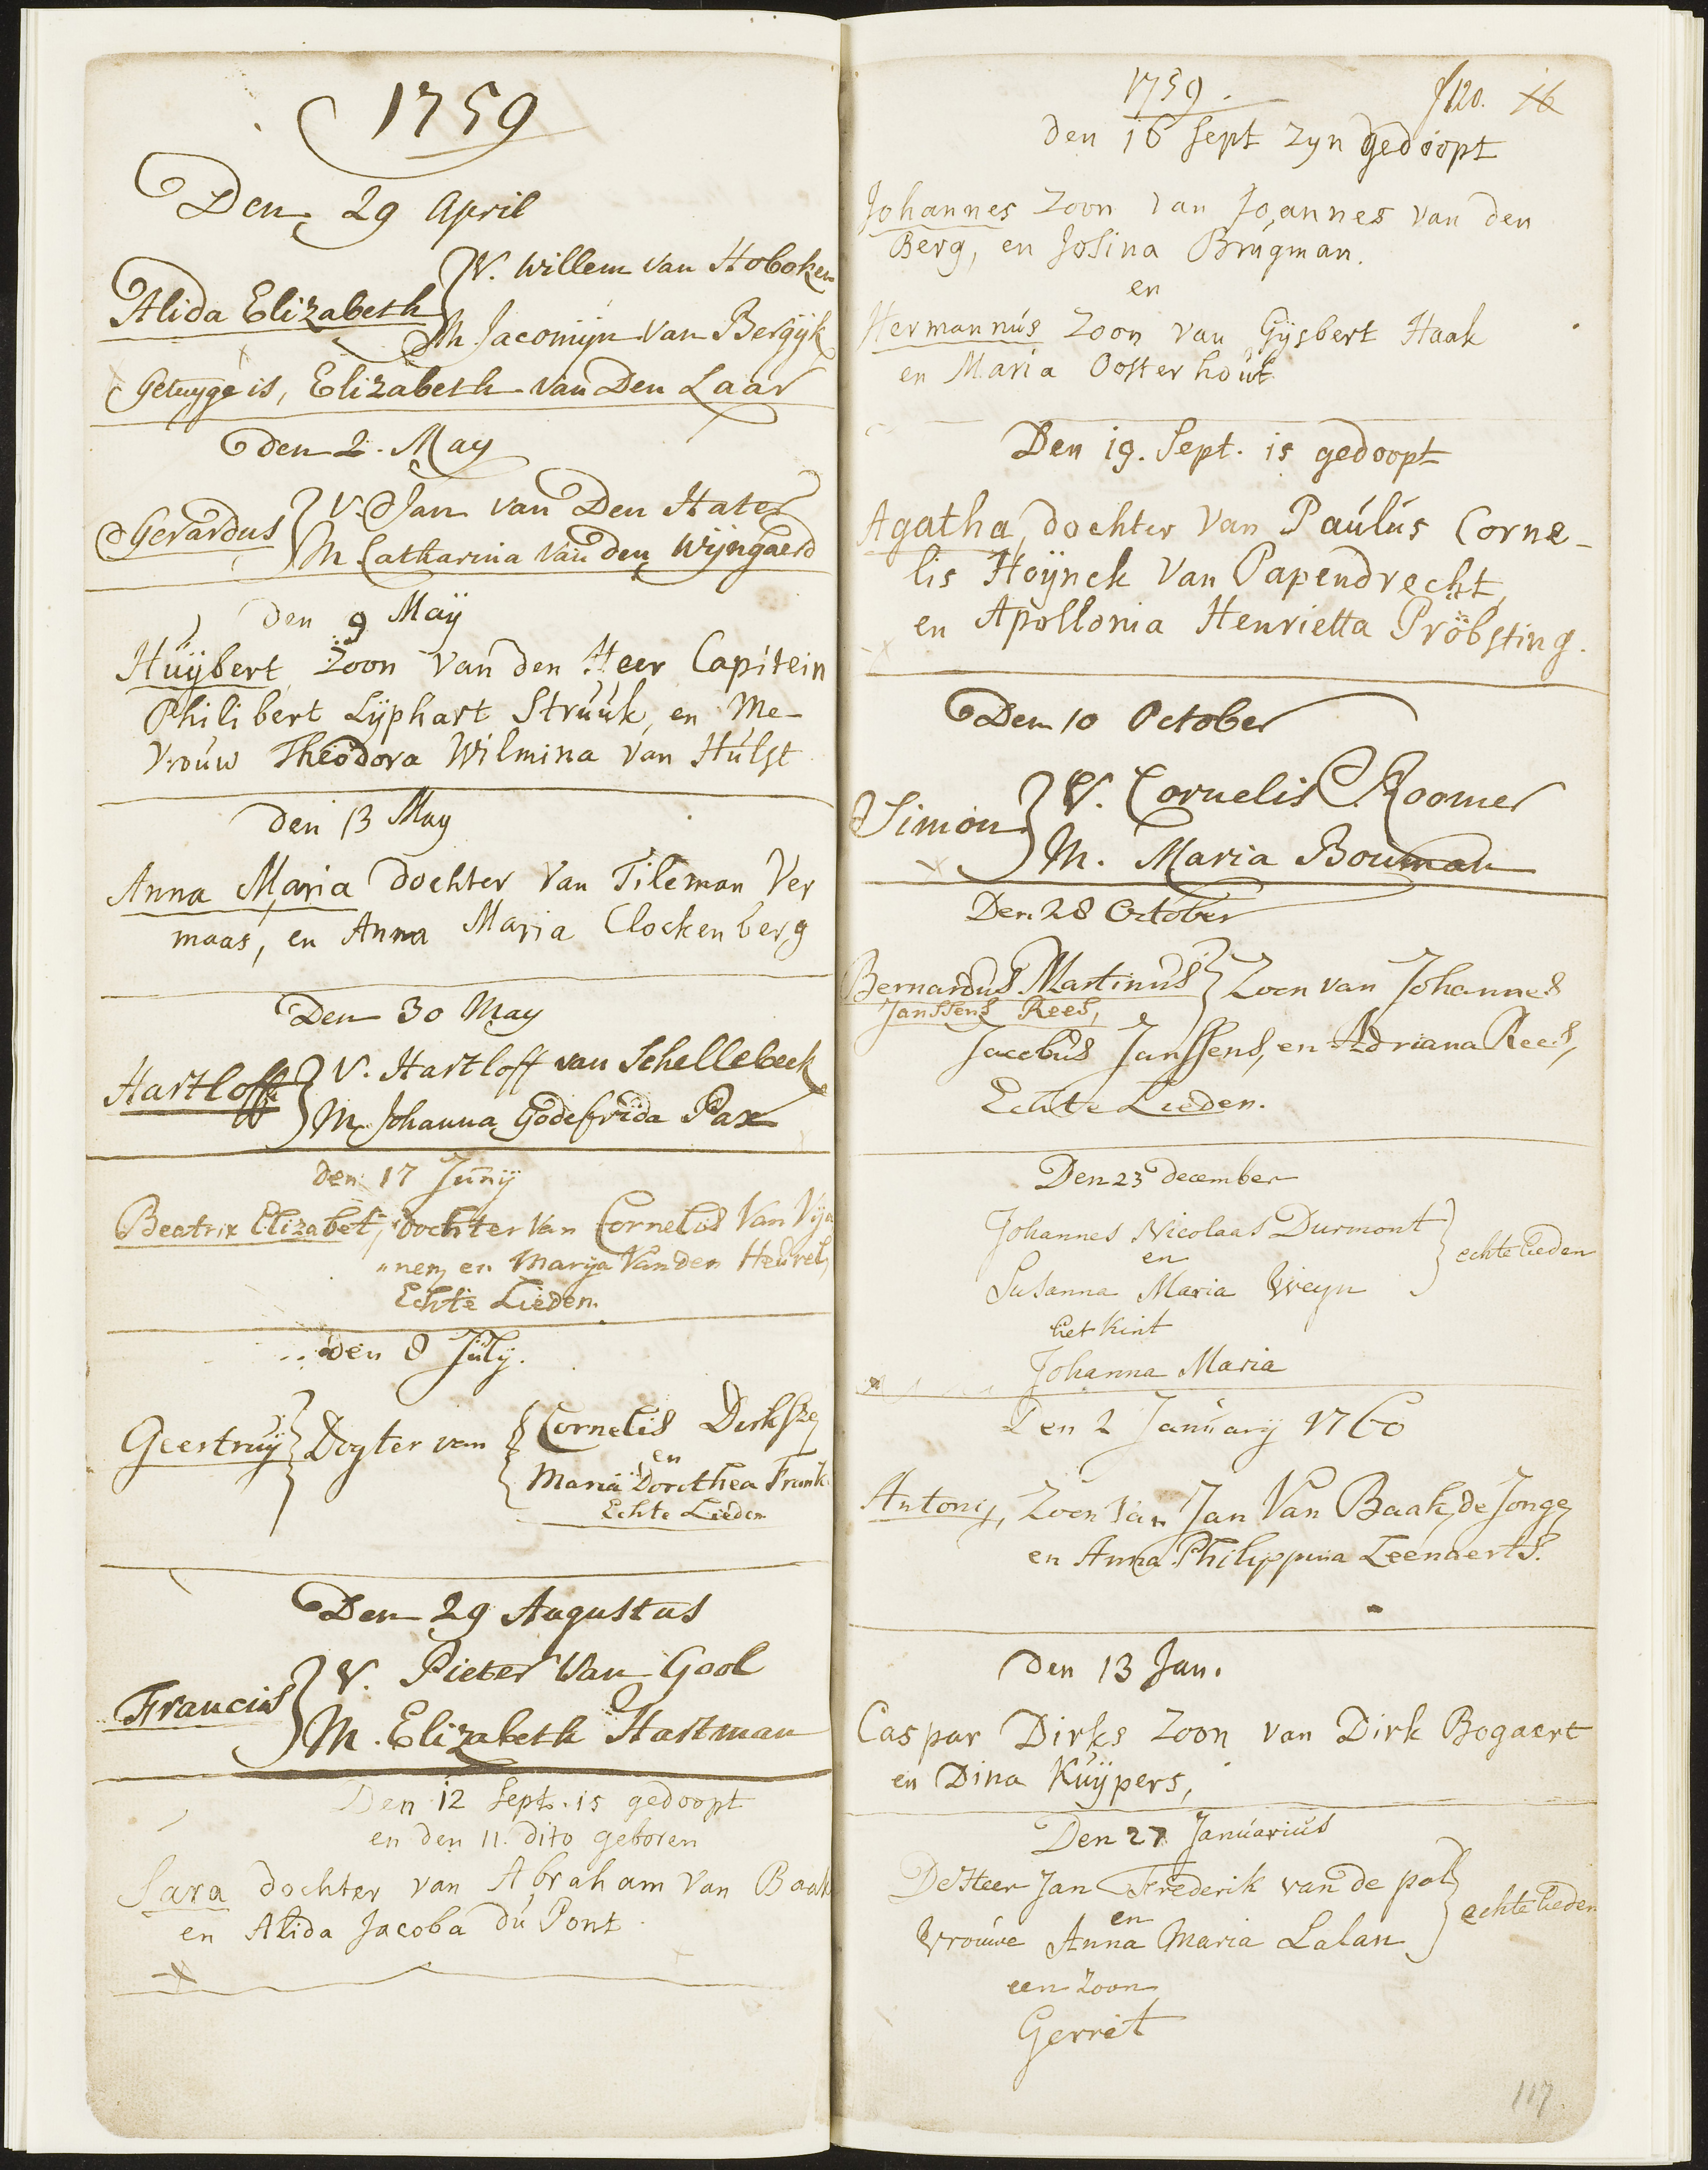 1759
Den 29 April
Alida Elizabeth
V. Willem van Hoboken
M Jacomijn van Bergijk
Getuyge is, Elizabeth van Den Laar
den 2. May
Gerardus
V. Jan van Den Hater
M Catharina van den Wijngaerd
Den 9 Maÿ
Huÿbert Zoon van den Heer Capitein
Philibert Lÿphart Struuk, en Me-
vrouw Theodora Wilmina van Hulst
Den 13 May
Anna Maria dochter van Tileman Ver
maas, en Anna Maria Clockenberg
Den 30 May
Hartloff
V. Hartloff van Schellebeek
M. Johanna Godefrida Pax
Den 17 Junÿ
Beatrix Elizabet, Dochter van Cornelis Van Vija
nen, en Marija Van den Heuvel,
Echte Lieden.
den 8 Julÿ.
Geertruÿ Dogter van
Cornelis Dirksze
en
Maria Dorothea Frank
Echte Lieden
Den 29 Augustus
Francis
V. Pieter Van Gool
M. Elizabeth Hartman
Den 12 Sept. is gedoopt
en den 11. dito geboren
Sara dochter van Abraham van Baak
en Alida Jacoba du Pont.
1759.
f 120. 16
den 16 Sept zyn gedoopt
Johannes Zoon van Joannes van den
Berg, en Josina Brugman.
en
Hermannus Zoon van Gijsbert Haak
en Maria Oosterhout
Den 19. Sept. is gedoopt
Agatha, dochter van Paulus Corne-
lis Hoÿnck van Papendrecht,
en Apollonia Henrietta Pröbsting.
Den 10 October
Simon
V. Cornelis Roomer
M. Maria Bouman
Den 28 October
Bernardus Martinus Zoon van Johannes
Janssens Rees,
Jacobus Janssens, en Adriana Rees,
Echte Lieden.
Den 23 December
Johannes Nicolaas Durmont
en
echte lieden
Susanna Maria Weyn
het kint
Johanna Maria
Den 2 Januarij 1760
Antonij, Zoon van Jan Van Baak, de Jonge
en Anna Philippina Leenaerts.
Den 13 Jan.
Caspar Dirks Zoon van Dirk Bogaert
en Dina Kuÿpers,
Den 27 Januarius
De Heer Jan Frederik van de pol
en
echte lieden
Vrouwe Anna Maria Lalan
een Zoon
Gerrit
117.